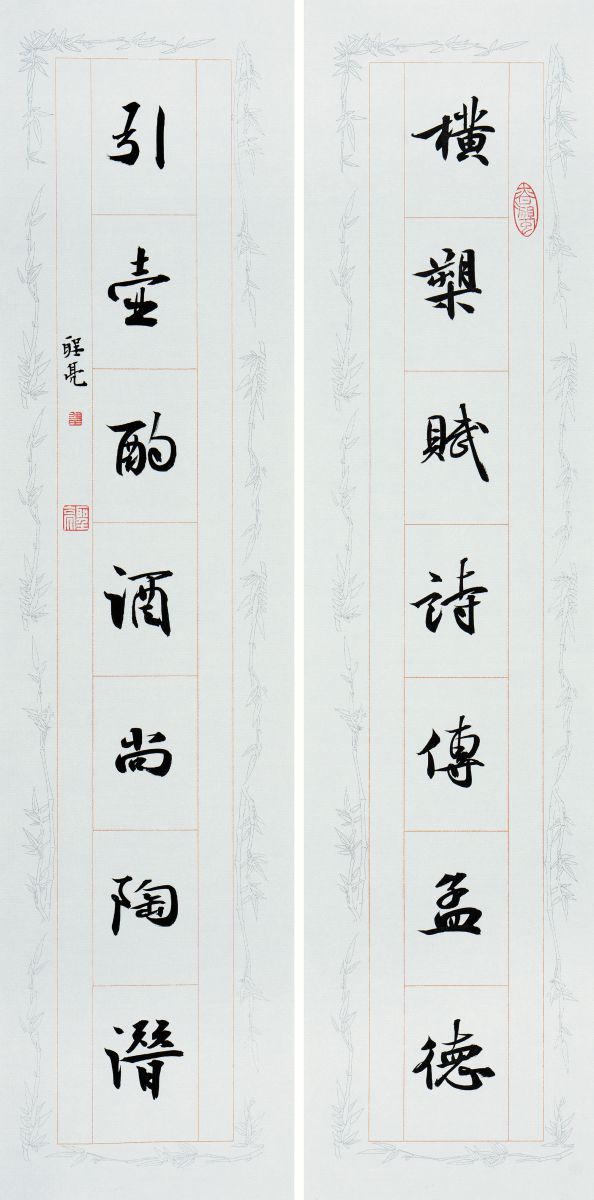 橫槊賦詩傳孟德
引壺酌酒尚陶潛
程亮